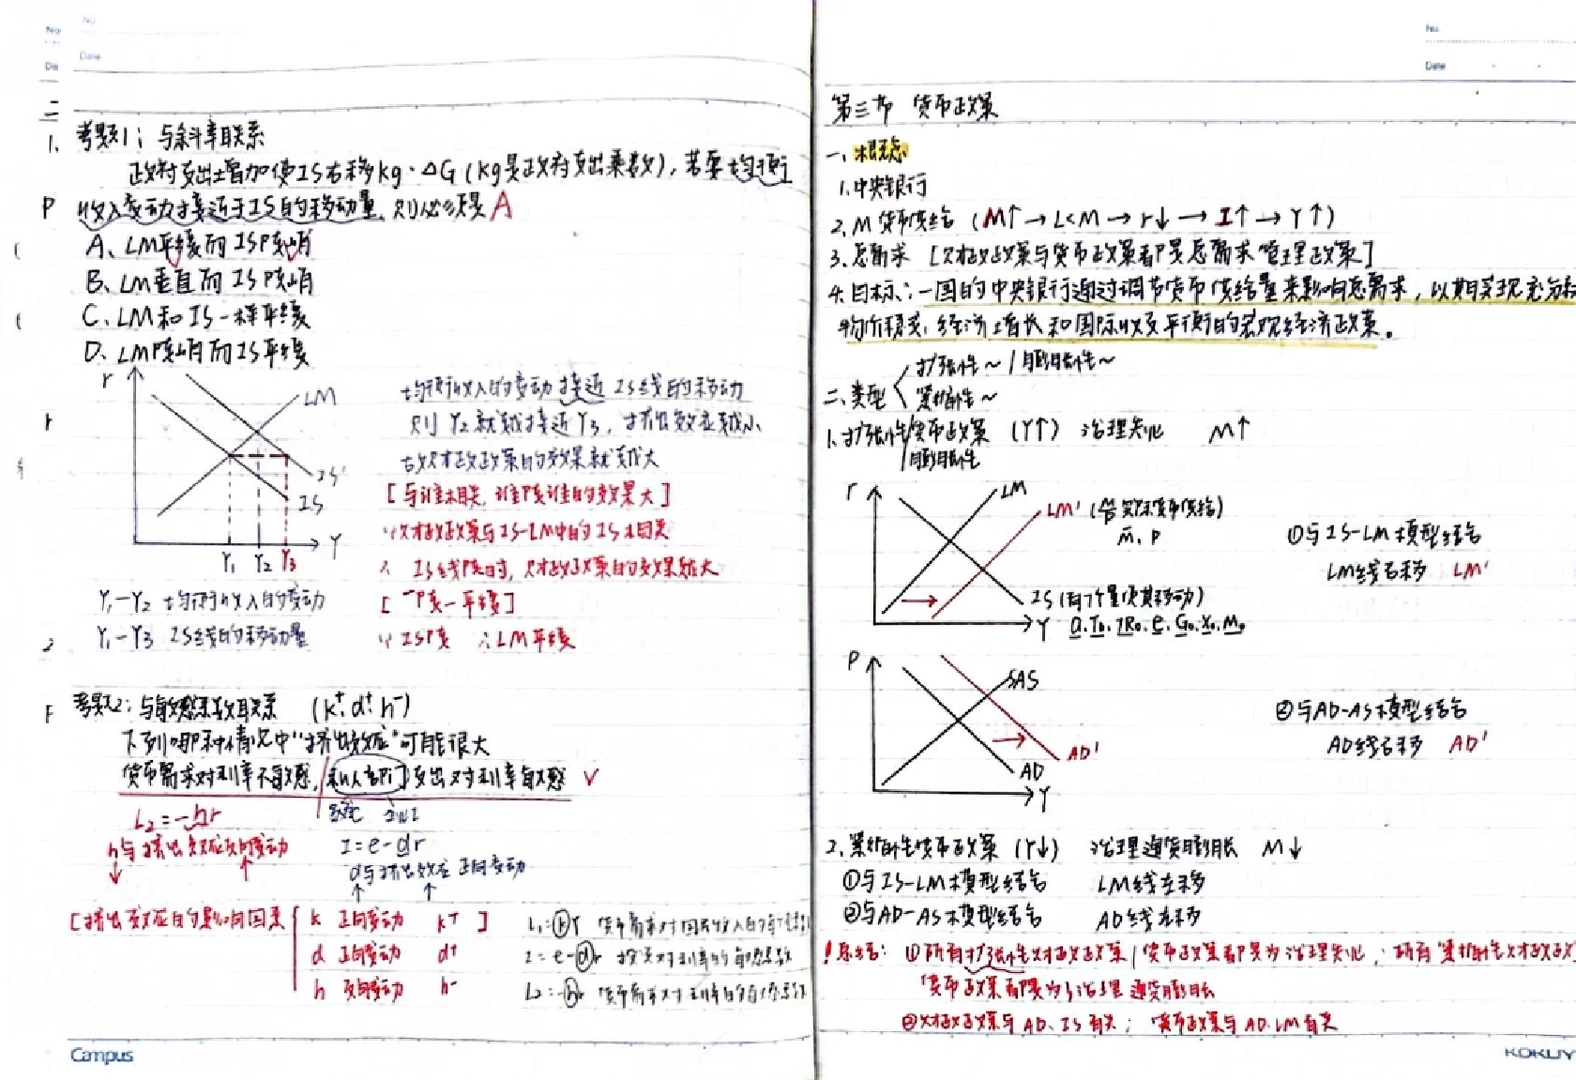 No.
Date
二
1. 考题1：与斜率联系
政府支出增加使IS右移kg·△G(kg是政府支出乘数)，若要均衡
收入变动接近于IS的移动量，则必须是 A
A、LM平缓而IS陡峭
B、LM垂直而IS陡峭
C、LM和IS一样平缓
D、LM陡峭而IS平缓
r
LM
IS'
IS
Y
Y₁ Y₂ Y₃
Y₁-Y₂ 均衡收入的变动
Y₁-Y₃ IS线的移动量
均衡收入的变动接近IS线的移动
则Y₂就越接近Y₃，挤出效应越小
故财政政策的效果就越大
[与谁相关，谁陡谁的效果大]
∵财政政策与IS-LM中的IS相关
∴ IS线陡时，财政政策的效果就大
[一陡一平缓]
∵IS陡 ∴LM平缓
考题2：与敏感系数联系 (k⁺.d⁺.h⁻)
下列哪种情况中“挤出效应”可能很大
货币需求对利率不敏感，私人部门支出对利率敏感 √
L₂=-hr
h与挤出效应反向变动
I=e-dr
d与挤出效应正向变动
[挤出效应的影响因素
k 正向变动 k⁺ ]
d 正向变动 d⁺
h 反向变动 h⁻
L₁=kY 货币需求对国民收入的
I=e-dr 投资对利率的敏感系数
L₂=-hr 货币需求对利率的敏感系数
Campus
No.
Date
第三节 货币政策
一、概念
1.中央银行
2.M 货币供给 (M↑→L<M→r↓→I↑→Y↑)
3.总需求 [财政政策与货币政策都是总需求管理政策]
4.目标：一国的中央银行通过调节货币供给量来影响总需求，以期实现充分
物价稳定、经济增长和国际收支平衡的宏观经济政策。
二、类型
扩张性~/膨胀性~
紧缩性~
1.扩张性/膨胀性货币政策 (Y↑) 治理失业 M↑
r
LM
LM' (含实际货币供给)
m.p
IS (有7个量使其移动)
Y a.T₀.TR₀.e.G₀.X₀.M₀
①与IS-LM模型结合
LM线右移 LM'
P
SAS
AD'
AD
Y
②与AD-AS模型结合
AD线右移 AD'
2.紧缩性货币政策 (Y↓) 治理通货膨胀 M↓
①与IS-LM模型结合 LM线左移
②与AD-AS模型结合 AD线左移
!总结：①所有扩张性财政政策/货币政策都是为治理失业；所有紧缩性财政政
货币政策都是为了治理通货膨胀
②财政政策与AD、IS有关；货币政策与AD.LM有关
KOKUY